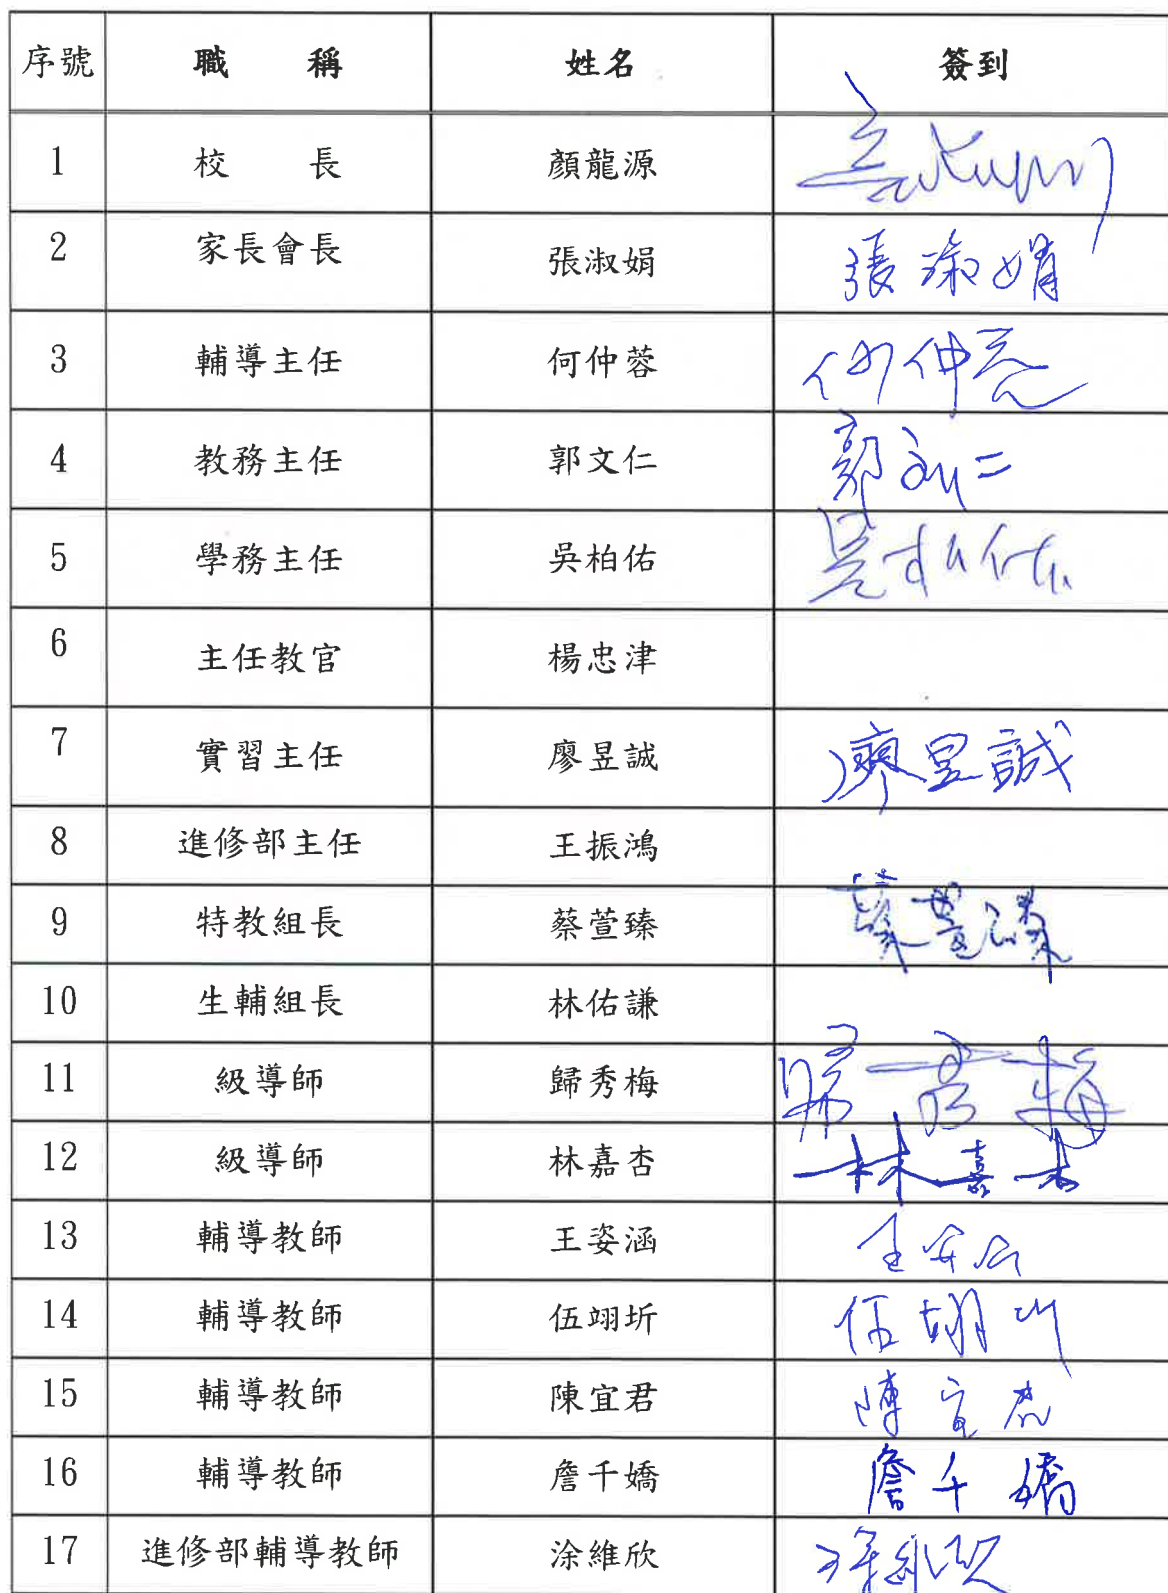 序號 職稱 姓名 簽到
1 校長 顏龍源
2 家長會長 張淑娟 張淑娟
3 輔導主任 何仲蓉 何仲蓉
4 教務主任 郭文仁 郭文仁
5 學務主任 吳柏佑 吳柏佑
6 主任教官 楊忠津
7 實習主任 廖昱誠 廖昱誠
8 進修部主任 王振鴻
9 特教組長 蔡萱臻 蔡萱臻
10 生輔組長 林佑謙
11 級導師 歸秀梅 歸秀梅
12 級導師 林嘉杏 林嘉杏
13 輔導教師 王姿涵 王姿涵
14 輔導教師 伍翊圻 伍翊圻
15 輔導教師 陳宜君 陳宜君
16 輔導教師 詹千嬌 詹千嬌
17 進修部輔導教師 涂維欣 涂維欣